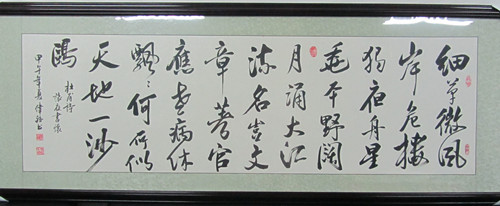 细草微风
岸危樯
独夜舟星
垂平野阔
月涌大江
流名岂文
章著官
應老病休
飘飘何所似
天地一沙
鸥
杜甫诗
旅夜書懷
甲午年夏